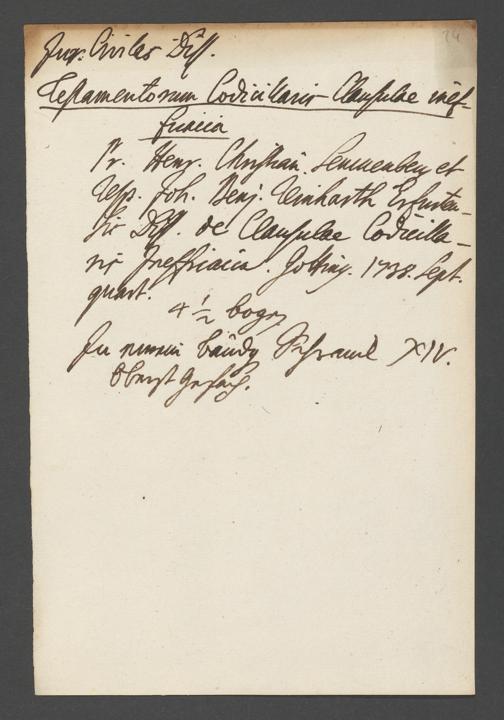 Jur. Civiles Diss.
Testamentorum Codicillaris Clausulae inef-
ficacia
Pr. Henr. Christian. Senckenberg et
Resp. Joh. Benj. Reinharth Erfurten-
sis Diss. de Clausulae Codicilla-
ris Inefficacia. Gotting. 1738. Sept.
quart.
4 1/2 bogen
In XIV.
Oberst
24